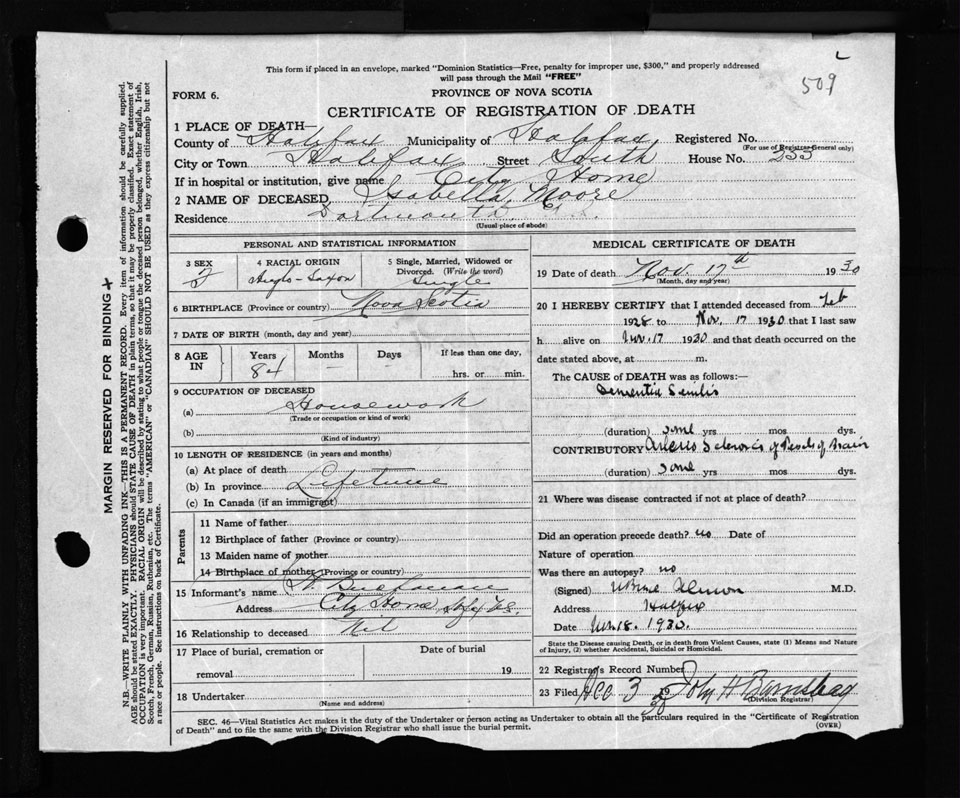 L
509
This form if placed in an envelope, marked "Dominion Statistics—Free, penalty for improper use, $300," and properly addressed
will pass through the Mail "FREE"
FORM 6.
PROVINCE OF NOVA SCOTIA
CERTIFICATE OF REGISTRATION OF DEATH
1 PLACE OF DEATH—
County of Halifax Municipality of Halifax Registered No.
(For use of Registrar General only)
City or Town Halifax Street South House No. 255
If in hospital or institution, give name City Home
2 NAME OF DECEASED Isabella Moore
Residence Dartmouth N.S.
(Usual place of abode)
PERSONAL AND STATISTICAL INFORMATION
3 SEX
F
4 RACIAL ORIGIN
Anglo-Saxon
5 Single, Married, Widowed or
Divorced. (Write the word)
Single
6 BIRTHPLACE (Province or country) Nova Scotia
7 DATE OF BIRTH (month, day and year)
8 AGE IN
Years Months Days If less than one day,
84 — — hrs. or min.
9 OCCUPATION OF DECEASED
(a) Housework
(Trade or occupation or kind of work)
(b)
(Kind of industry)
10 LENGTH OF RESIDENCE (in years and months)
(a) At place of death
(b) In province Lifetime
(c) In Canada (if an immigrant)
Parents
11 Name of father
12 Birthplace of father (Province or country)
13 Maiden name of mother
14 Birthplace of mother (Province or country)
15 Informant's name W. Buchanan
Address City Home, Hfx, N.S.
16 Relationship to deceased Nil
17 Place of burial, cremation or
removal
Date of burial
19
18 Undertaker
(Name and address)
MEDICAL CERTIFICATE OF DEATH
19 Date of death Nov. 17th 1930
(Month, day and year)
20 I HEREBY CERTIFY that I attended deceased from Feb
1928 to Nov. 17 1930 that I last saw
h alive on Nov. 17 1930 and that death occurred on the
date stated above, at m.
The CAUSE of DEATH was as follows:—
Dementia Senilis
(duration) some yrs mos dys.
CONTRIBUTORY Arterio Sclerosis of Vessels of Brain
(duration) some yrs mos dys.
21 Where was disease contracted if not at place of death?
Did an operation precede death? no Date of
Nature of operation
Was there an autopsy? no
(Signed) Almon M.D.
Address Halifax
Date Nov. 18. 1930.
State the Disease causing Death, or in death from Violent Causes, state (1) Means and Nature
of Injury, (2) whether Accidental, Suicidal or Homicidal.
22 Registrar's Record Number
23 Filed Dec 3 1930 John H Barnstead
(Division Registrar)
SEC. 46—Vital Statistics Act makes it the duty of the Undertaker or person acting as Undertaker to obtain all the particulars required in the "Certificate of Registration
of Death" and to file the same with the Division Registrar who shall issue the burial permit.
(OVER)
MARGIN RESERVED FOR BINDING
N.B.—WRITE PLAINLY WITH UNFADING INK—THIS IS A PERMANENT RECORD. Every item of information should be carefully supplied.
AGE should be stated EXACTLY. PHYSICIANS should STATE CAUSE OF DEATH in plain terms, so that it may be properly classified. Exact statement of
OCCUPATION is very important. RACIAL ORIGIN will be described by stating to what people or tongue the deceased person belonged, whether English, Irish,
Scotch, French, German, Russian, Ruthenian, etc. The terms "AMERICAN" or "CANADIAN" SHOULD NOT BE USED as they express citizenship but not
a race or people. See instructions on back of Certificate.